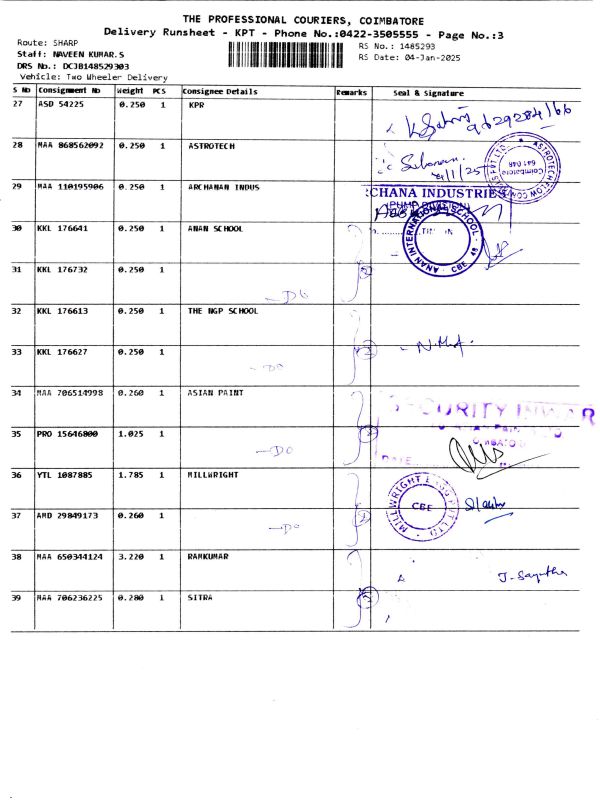 THE PROFESSIONAL COURIERS, COIMBATORE
Delivery Runsheet - KPT - Phone No.:0422-3505555 - Page No.:3
Route: SHARP
RS No.: 1485293
Staff: NAVEEN KUMAR.S
RS Date: 04-Jan-2025
DRS No.: DCJB148529303
Vehicle: Two Wheeler Delivery
S No Consignment No Weight PCS Consignee Details Remarks Seal & Signature
27 ASD 54225 0.250 1 KPR
28 MAA 868562092 0.250 1 ASTROTECH
29 MAA 110195906 0.250 1 ARCHANAN INDUS
CHANA INDUSTRIES
30 KKL 176641 0.250 1 ANAN SCHOOL
ANAN INTERNATIONAL SCHOOL CBE 48
31 KKL 176732 0.250 1
32 KKL 176613 0.250 1 THE NGP SCHOOL
33 KKL 176627 0.250 1
- DO
34 MAA 706514998 0.260 1 ASIAN PAINT
SECURITY INWAR
35 PRO 15646800 1.025 1
- DO
DATE
36 YTL 1087885 1.785 1 MILLWRIGHT
CBE
37 AMD 29849173 0.260 1
- DO
38 MAA 650344124 3.220 1 RAMKUMAR
39 MAA 706236225 0.280 1 SITRA